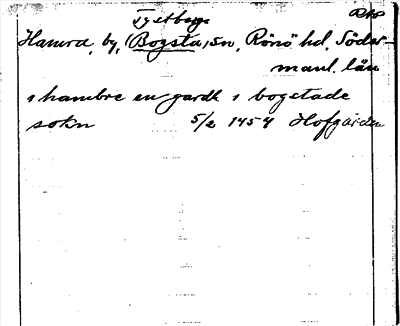 Tystberga
Hamra, by, (Bogsta, sn, Rönö hd, Söder-
manl. län
i hambre en gardh i bogstade
sokn 5/2 1454 Hofgården